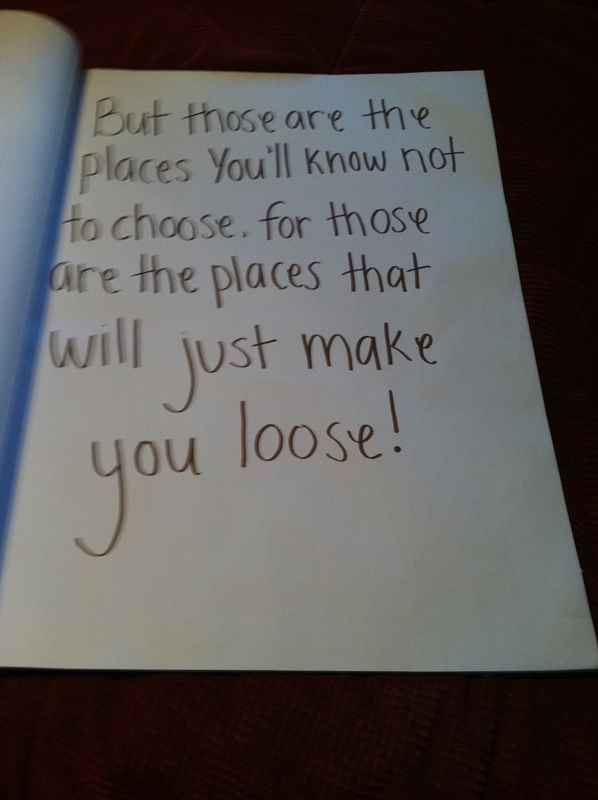 But those are the
places You'll know not
to choose. for those
are the places that
will just make
you loose!